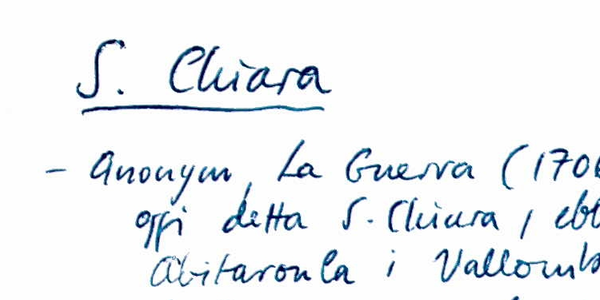 S. Chiara
- Anonym, La Guerra (1706
oggi detta S. Chiara, ebb
Abitaronla i Vallomb